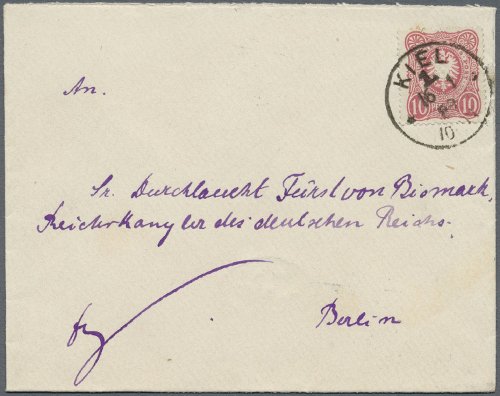 KIEL
16 1
10
10 10
An.
Sr. Durchlaucht Fürst von Bismark,
Reichskanzler des deutschen Reichs.
Berlin